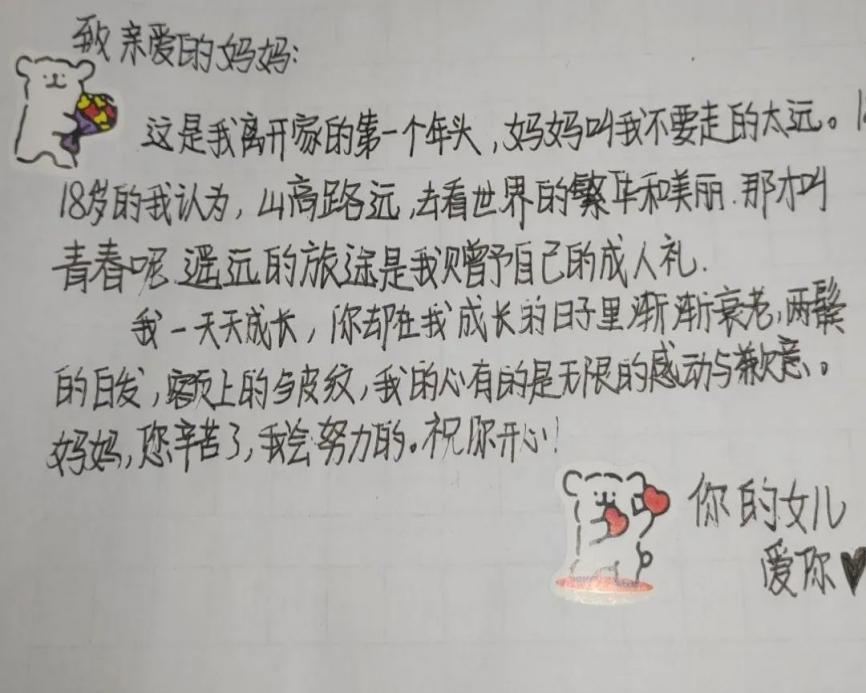 致亲爱的妈妈:
这是我离开家的第一个年头,妈妈叫我不要走的太远。
18岁的我认为,山高路远,去看世界的繁华和美丽.那才叫
青春呢.遥远的旅途是我赠予自己的成人礼.
我一天天成长,你却在我成长的日子里渐渐衰老,两鬓
的白发,额上的皮纹,我的心有的是无限的感动与歉意。
妈妈,您辛苦了,我会努力的。祝你开心!
你的女儿
爱你♥